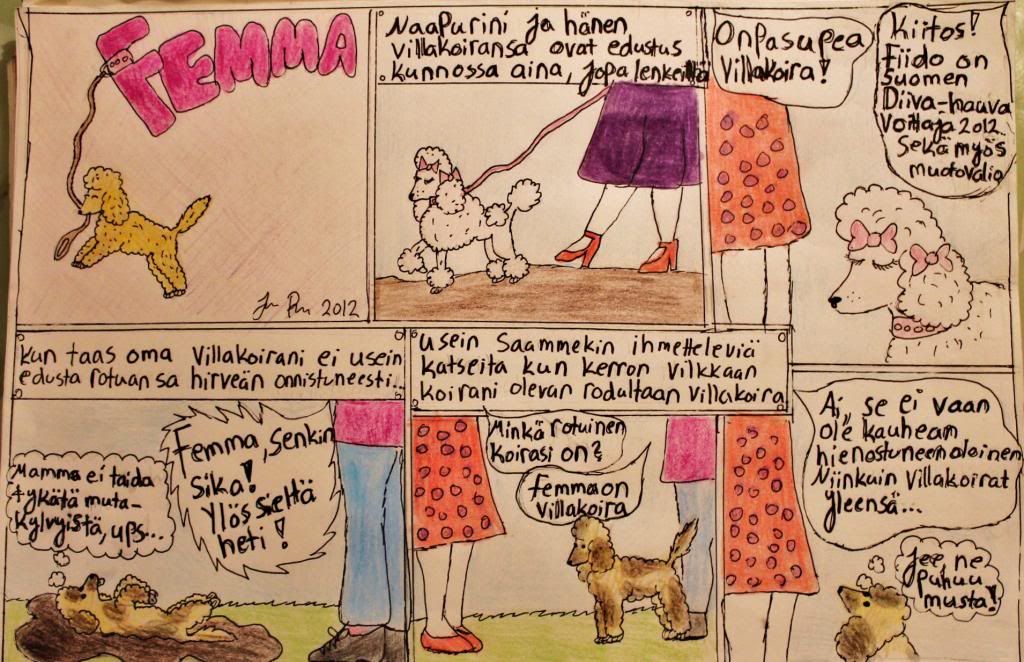 FEMMA
Jn Pn 2012
Naapurini ja hänen
villakoiransa ovat edustus
kunnossa aina, jopa lenkeillä
Onpa supea
Villakoira!
Kiitos!
Fiido on
Suomen
Diiva-hauva
voittaja 2012
Sekä myös
muotovalio
Kun taas oma villakoirani ei usein
edusta rotuansa hirveän onnistuneesti...
Mamma ei taida
tykätä muta-
kylvyistä, ups...
Femma, senkin
sika!
Ylös sieltä
heti!
Usein saammekin ihmetteleviä
katseita kun kerron vilkkaan
koirani olevan rodultaan villakoira
Minkä rotuinen
koirasi on?
Femma on
villakoira
Ai, se ei vaan
ole kauhean
hienostuneen oloinen
Niinkuin Villakoirat
yleensä...
Jee, ne
puhuu
musta!